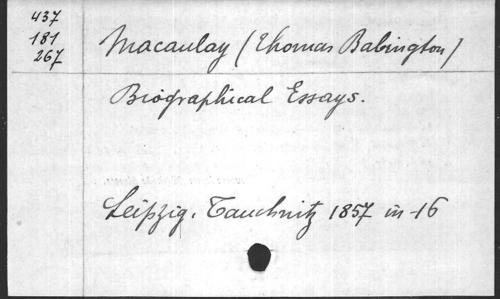 437
181
267
Macaulay (Thomas Babington)
Biographical Essays.
Leipzig. Tauchnitz 1857 in-16